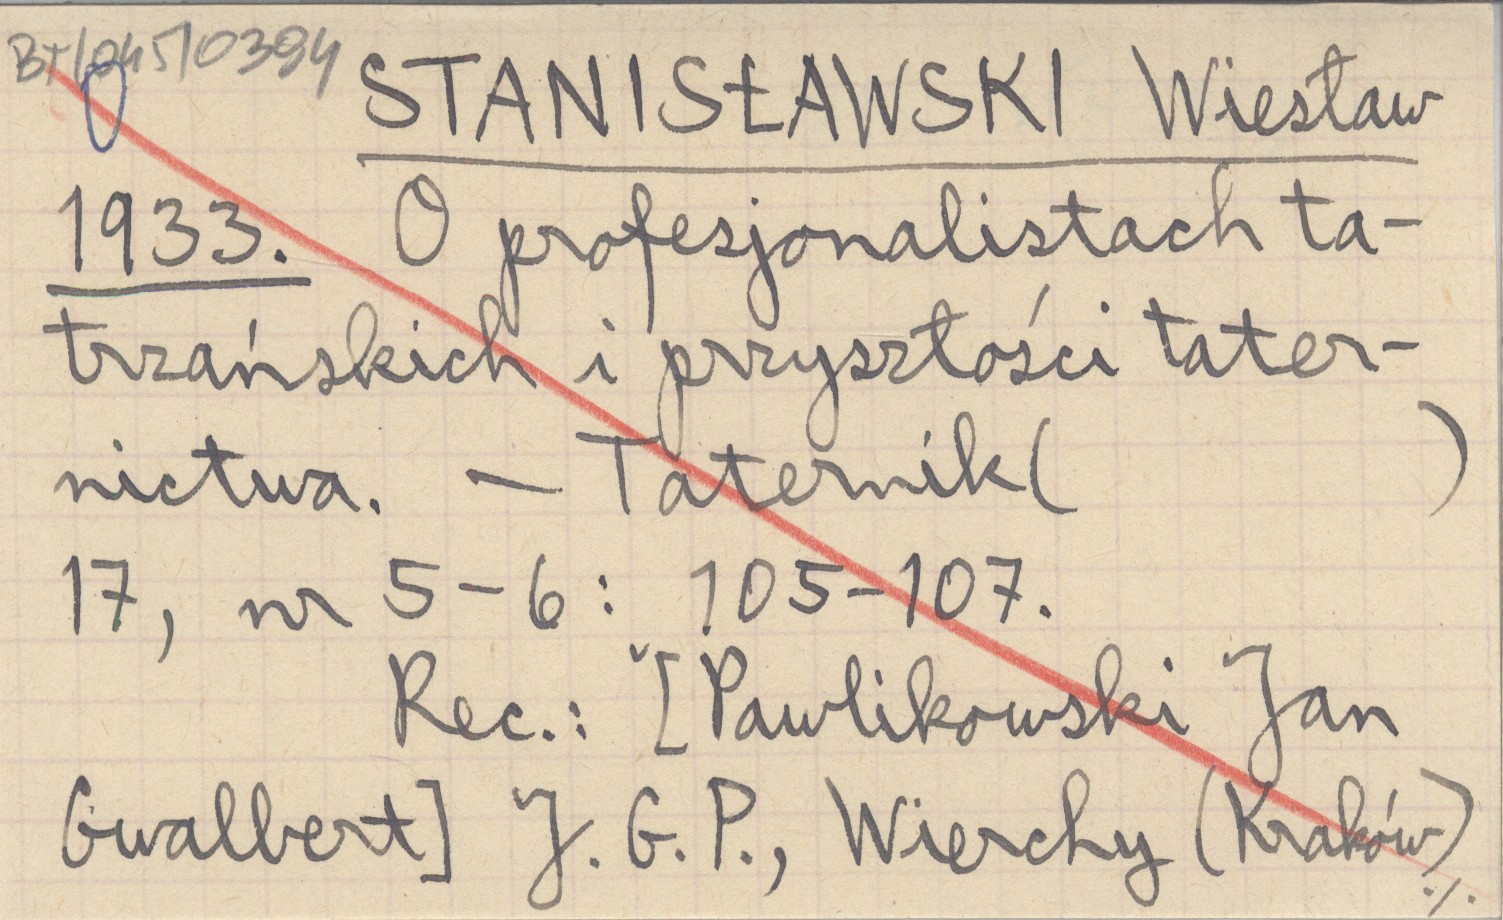 STANISŁAWSKI Wiesław
1933. O profesjonalistach ta-
trzańskich i przyszłości tater-
nictwa. — Taternik (          )
17, nr 5-6: 105-107.
Rec.: [Pawlikowski Jan
Gwalbert] J. G. P., Wierchy (Kraków)
./.